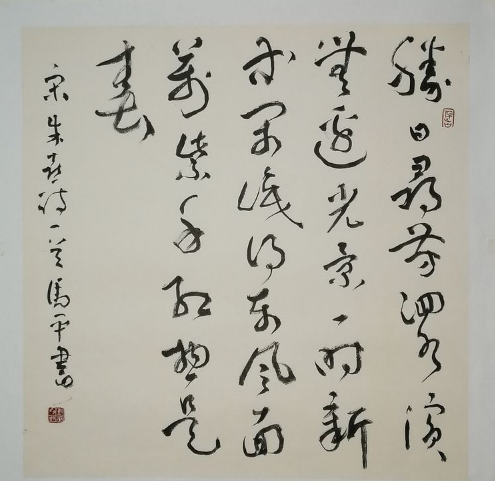 勝日尋芳泗水濱
無邊光景一時新
等閑識得東風面
萬紫千紅總是
春
宋朱熹詩一首馬平書